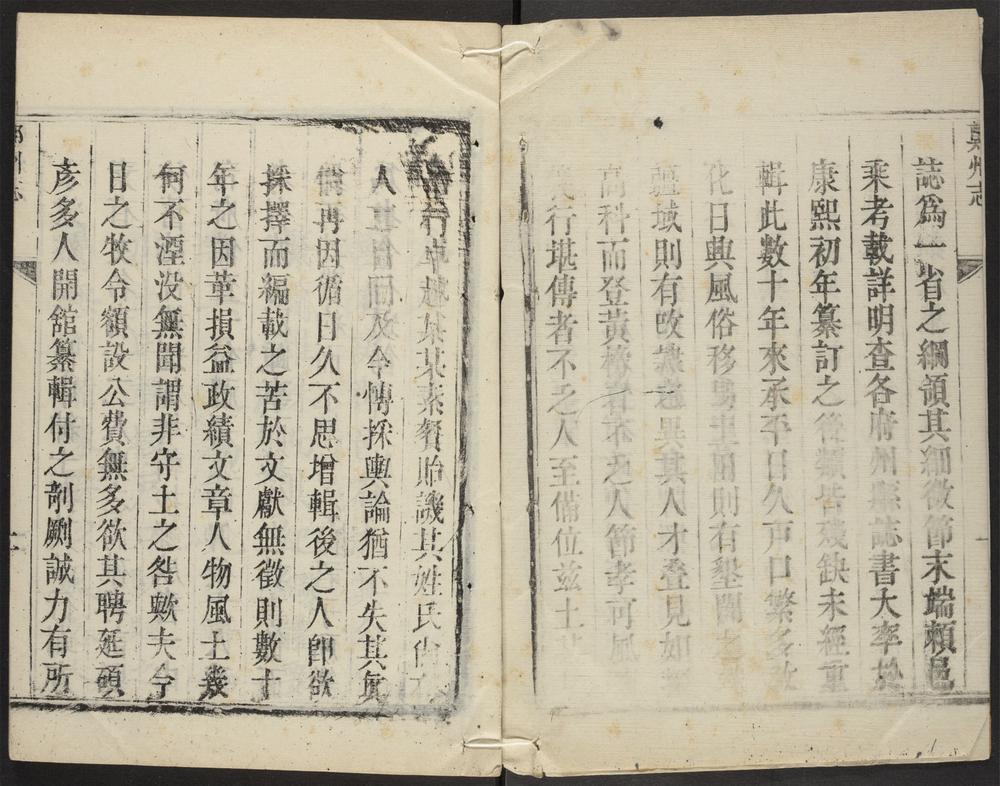 鄚州志
誌爲一省之綱領其細微節末端賴邑
乘考載詳明查各府州縣誌書大率於
康熙初年纂訂之後類皆殘缺未經重
輯此數十年來承平日久戶口繁多政
化日興風俗移易土田則有墾闢之
疆域則有改隸之異其人才疊見如
高科而登黃榜者不乏人節孝可風
行堪傳者不乏人至備位兹土
行卓越某某素餐貽譏其姓氏
人及今博採輿論猶不失其眞
倘再因循日久不思增輯後之人卽欲
採擇而編載之苦於文獻無徵則數十
年之因革損益政績文章人物風土幾
何不湮没無聞謂非守土之咎歟夫今
日之牧令額設公費無多欲其聘延碩
彥多人開舘纂輯付之剞劂誠力有所
州志